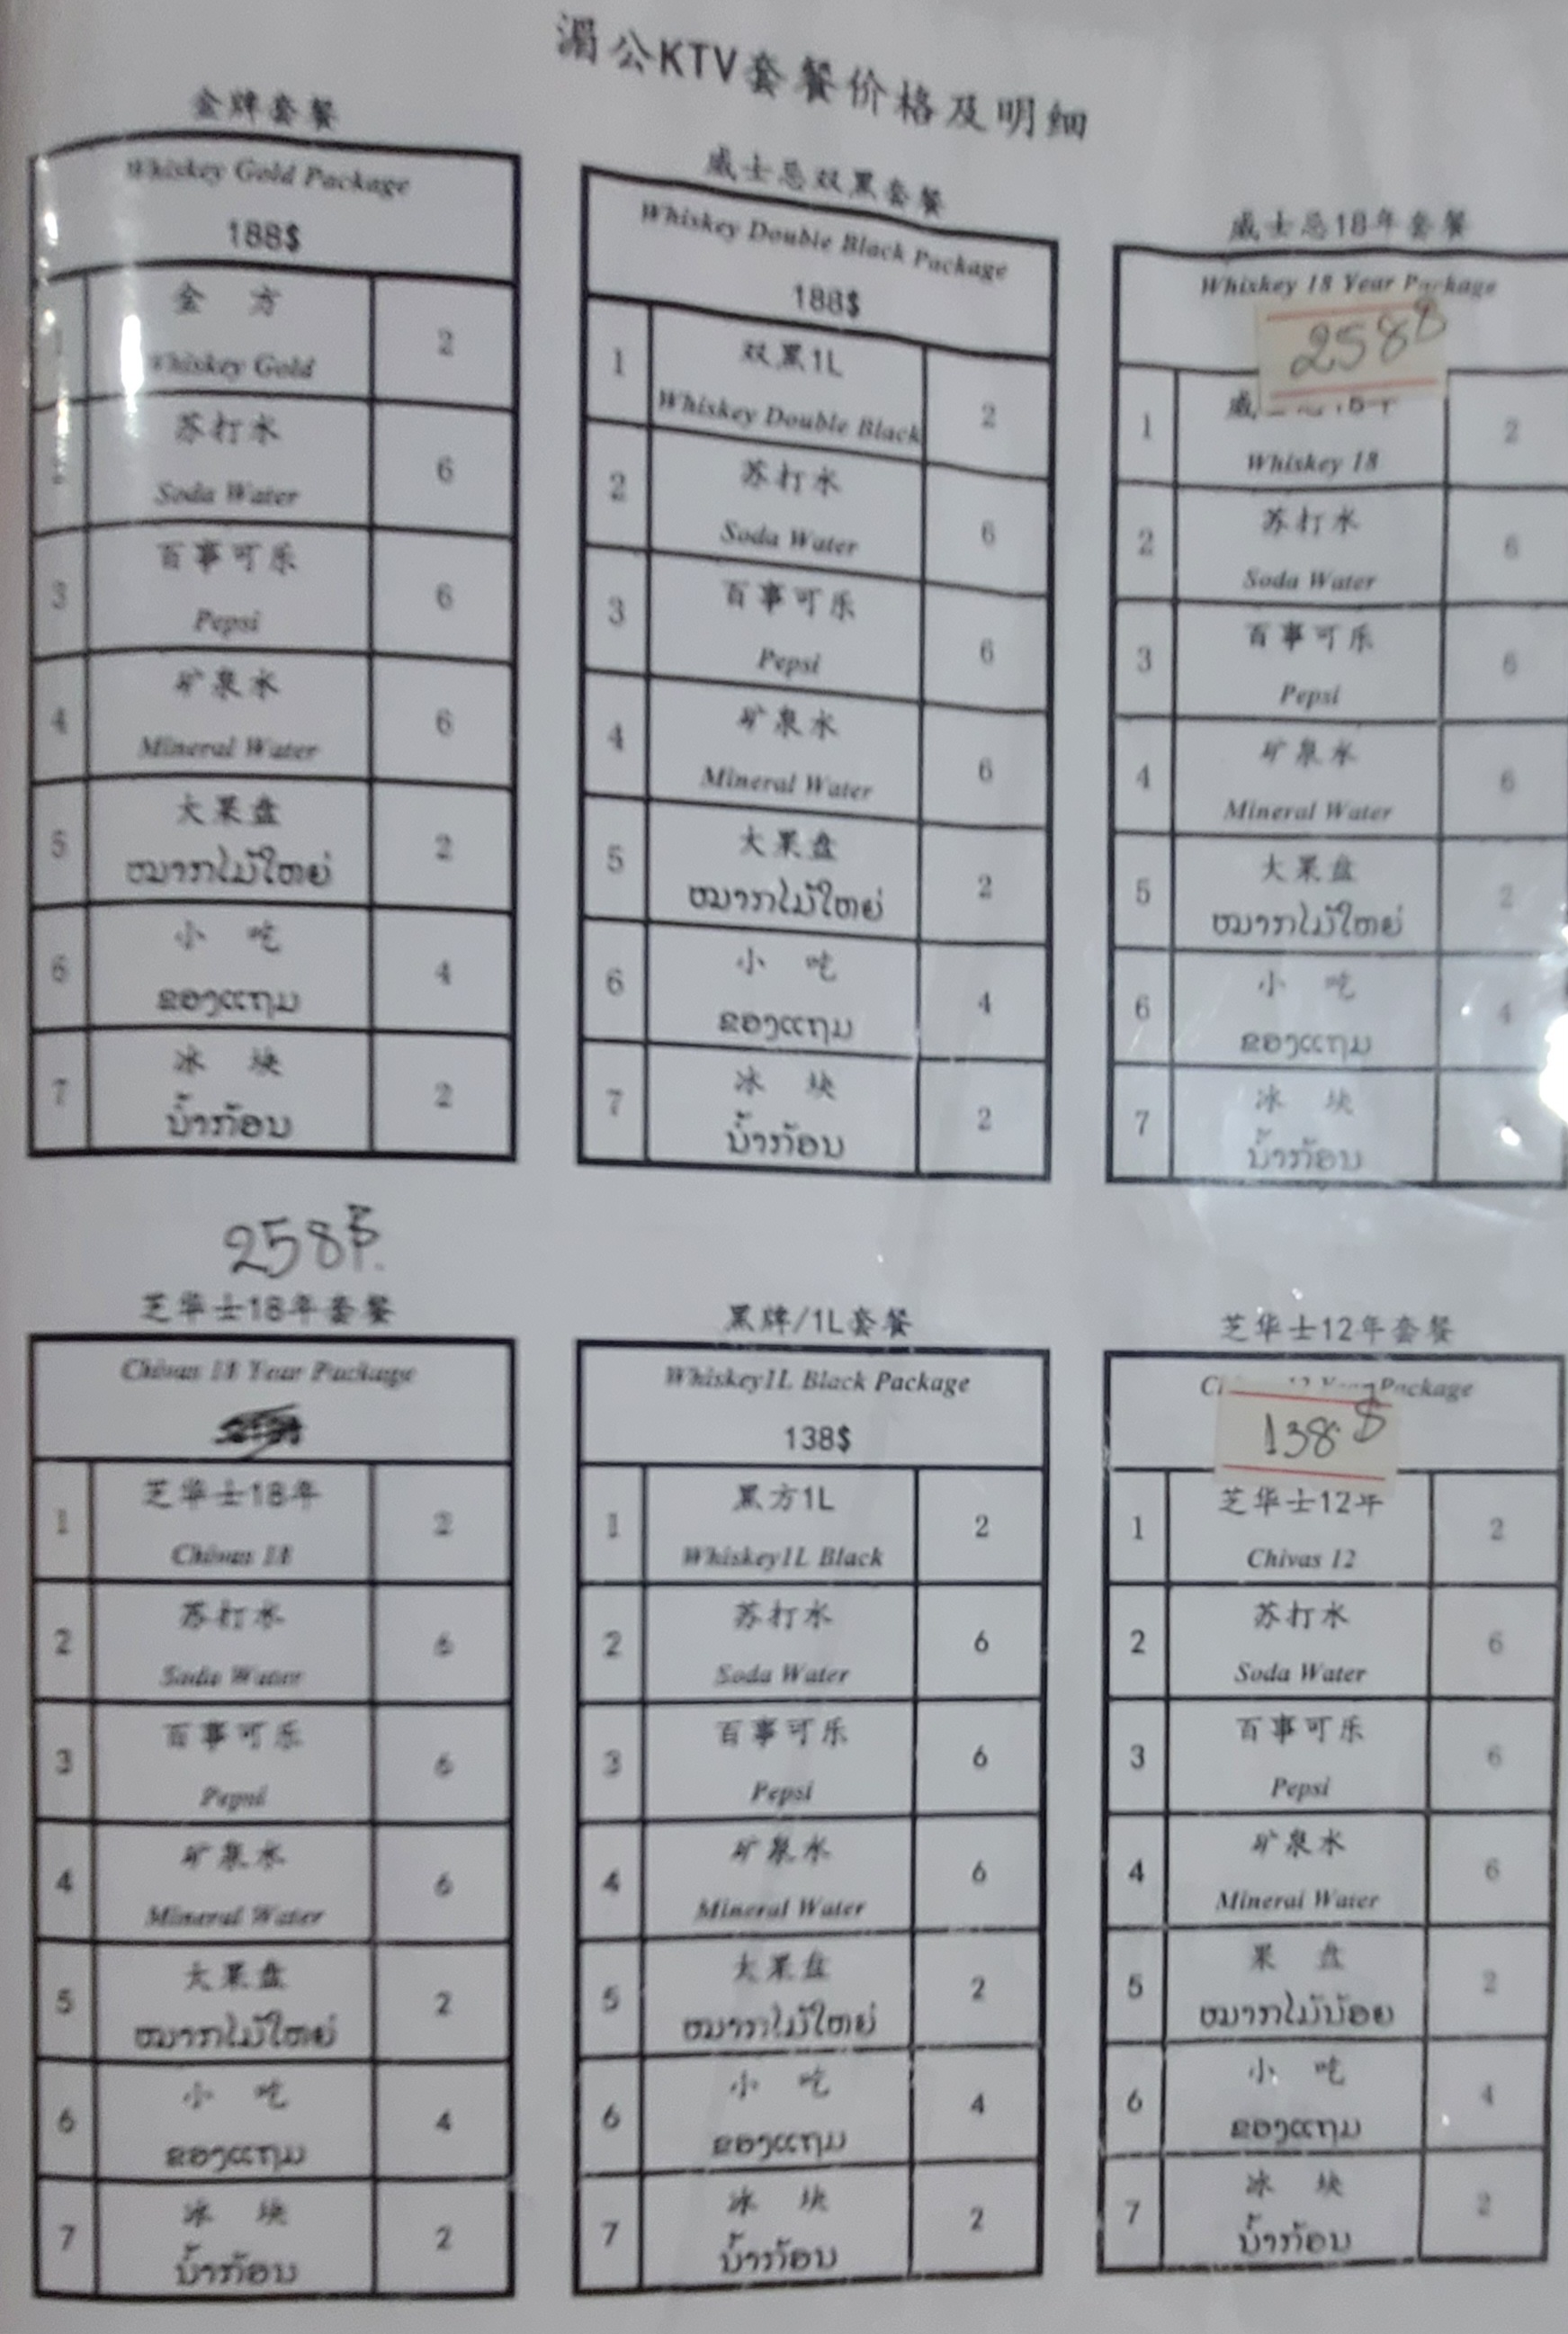 湄公KTV套餐价格及明细
金牌套餐
Whiskey Gold Package
188$
金 方 2
Whiskey Gold
苏打水 6
Soda Water
3 百事可乐 6
Pepsi
4 矿泉水 6
Mineral Water
5 大果盘 2
ໝາກໄມ້ໃຫຍ່
6 小 吃 4
ຂອງແກມ
7 冰 块 2
ນ້ຳກ້ອນ
威士忌双黑套餐
Whiskey Double Black Package
188$
1 双黑1L 2
Whiskey Double Black
2 苏打水 6
Soda Water
3 百事可乐 6
Pepsi
4 矿泉水 6
Mineral Water
5 大果盘 2
ໝາກໄມ້ໃຫຍ່
6 小 吃 4
ຂອງແກມ
7 冰 块 2
ນ້ຳກ້ອນ
威士忌18年套餐
Whiskey 18 Year Package
258$
1 威 2
Whiskey 18
2 苏打水 6
Soda Water
3 百事可乐 6
Pepsi
4 矿泉水 6
Mineral Water
5 大果盘 2
ໝາກໄມ້ໃຫຍ່
6 小 吃 4
ຂອງແກມ
7 冰 块
ນ້ຳກ້ອນ
258$
芝华士18年套餐
Chivas 18 Year Package
1 芝华士18年 2
Chivas 18
2 苏打水 6
Soda Water
3 百事可乐 6
Pepsi
4 矿泉水 6
Mineral Water
5 大果盘 2
ໝາກໄມ້ໃຫຍ່
6 小 吃 4
ຂອງແກມ
7 冰 块 2
ນ້ຳກ້ອນ
黑牌/1L套餐
Whiskey1L Black Package
138$
1 黑方1L 2
Whiskey1L Black
2 苏打水 6
Soda Water
3 百事可乐 6
Pepsi
4 矿泉水 6
Mineral Water
5 大果盘 2
ໝາກໄມ້ໃຫຍ່
6 小 吃 4
ຂອງແກມ
7 冰 块 2
ນ້ຳກ້ອນ
芝华士12年套餐
Package
138$
1 芝华士12年 2
Chivas 12
2 苏打水 6
Soda Water
3 百事可乐 6
Pepsi
4 矿泉水 6
Mineral Water
5 果 盘 2
ໝາກໄມ້ນ້ອຍ
6 小 吃 4
ຂອງແກມ
7 冰 块 2
ນ້ຳກ້ອນ